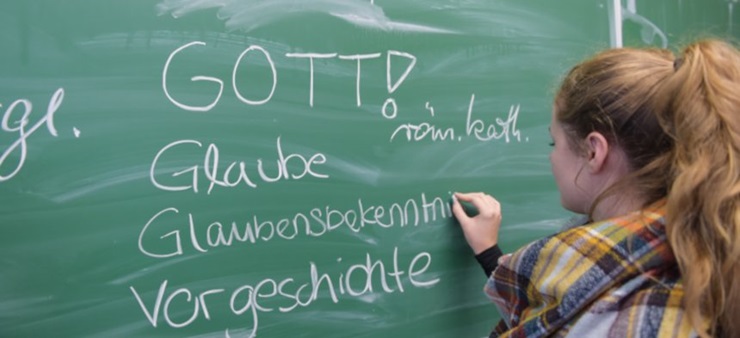 GOTT!
röm.kath.
gl.
Glaube
Glaubensbekenntni
Vorgeschichte